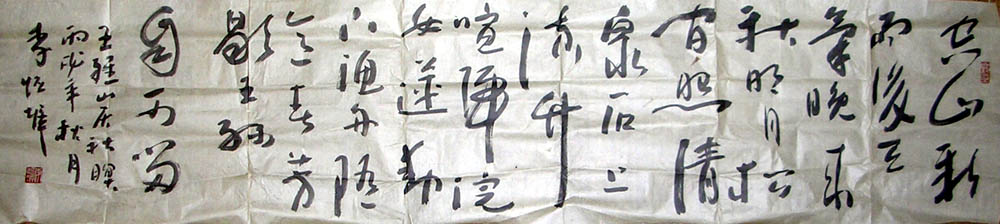 空山新
雨後天
氣晚来
秋明月松
间照清
泉石上
流竹
喧歸浣
女莲動
下漁舟随
意春芳
歇王孫
自可留
王維山居秋暝
丙戌年秋月
李恒